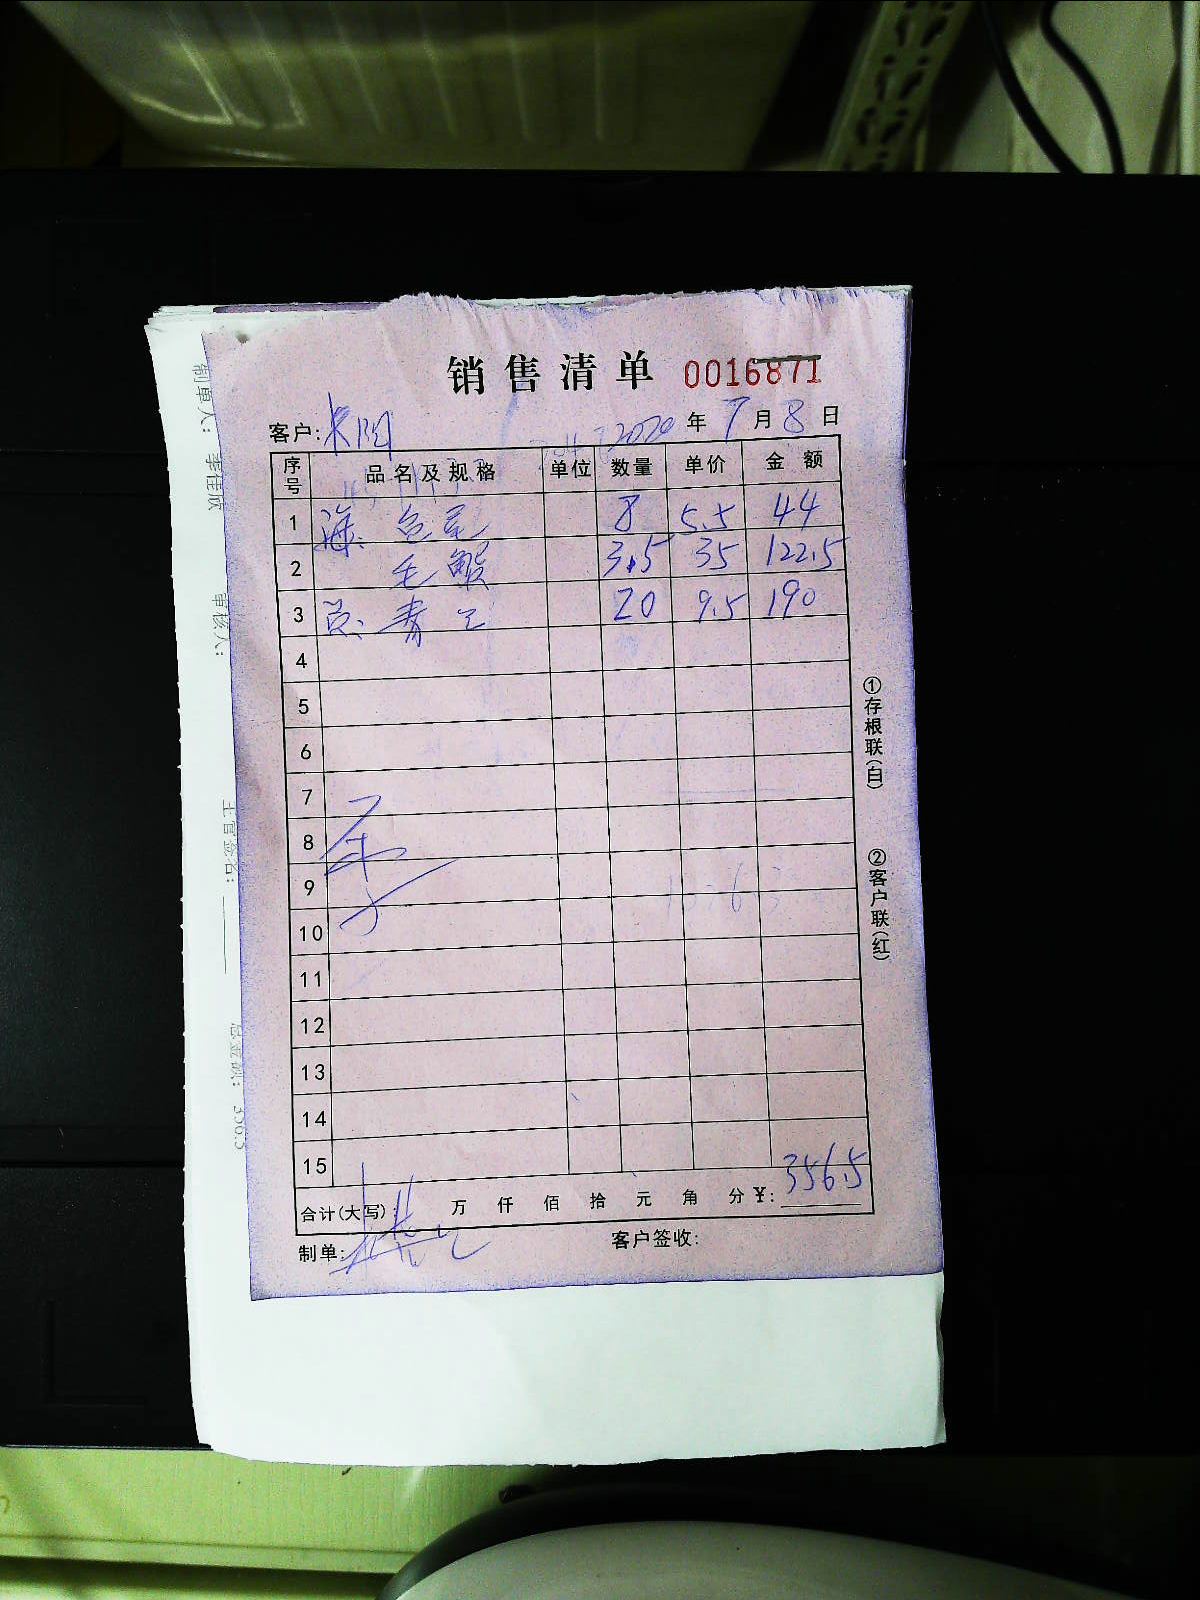 销售清单 0016871
客户: 2020年7月8日
序号 品名及规格 单位 数量 单价 金额
1 8 5.5 44
2 3.5 35 122.5
3 青 20 9.5 190
4
5
6
7
8
9
10
11
12
13
14
15
合计(大写): 万 仟 佰 拾 元 角 分 ¥: 356.5
制单: 客户签收:
①存根联(白)
②客户联(红)
制单人: 李佳欣
审核人:
主管签名:
总金额: 356.5